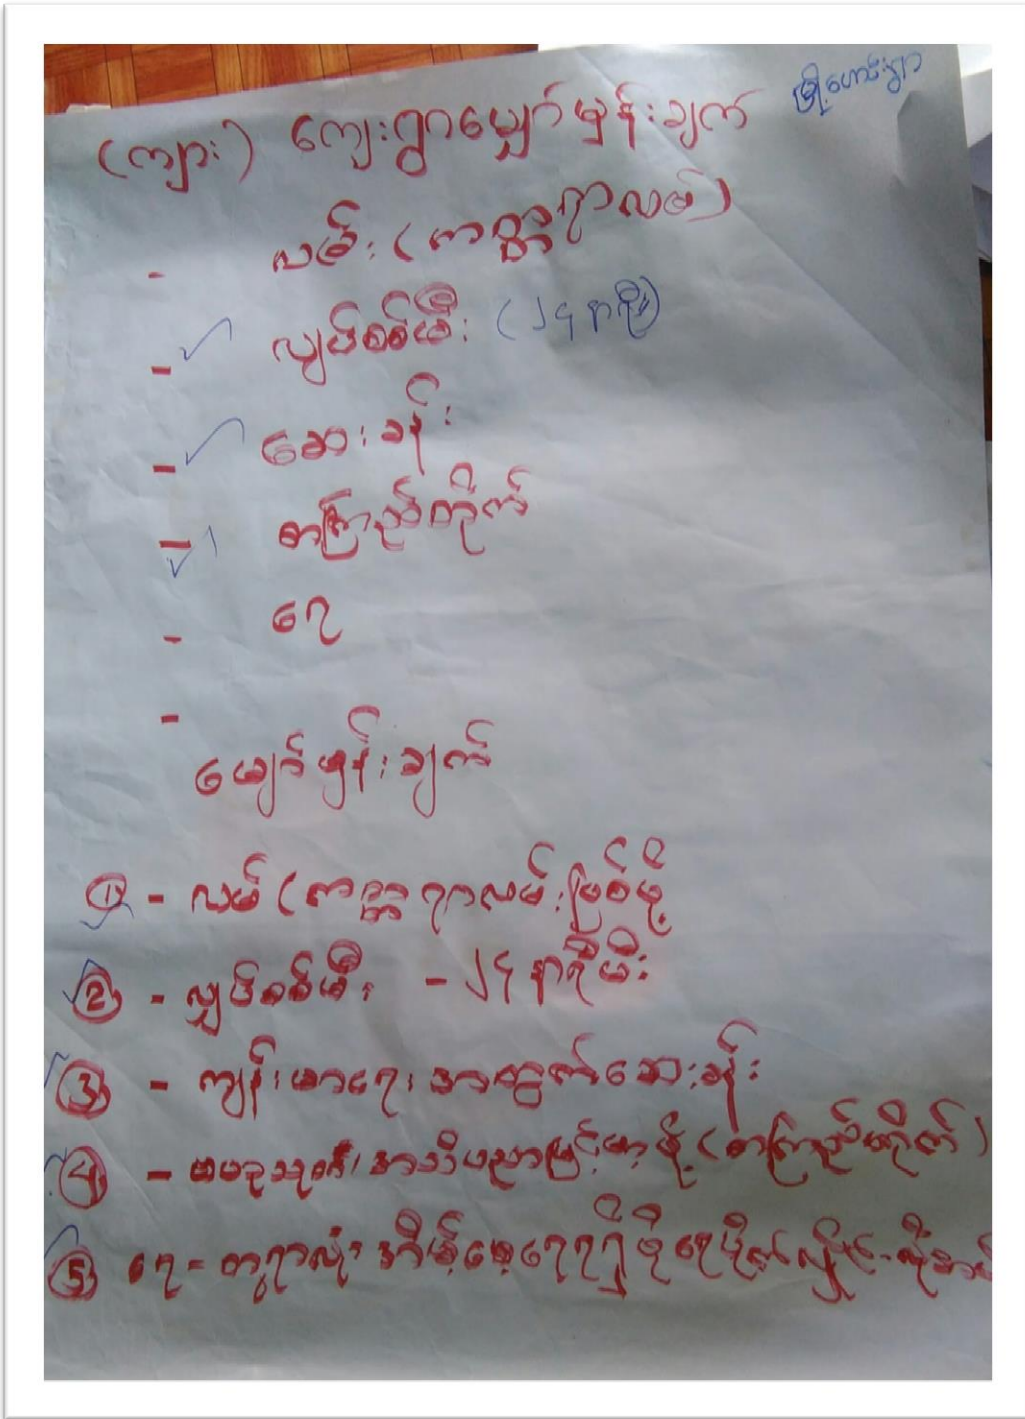 မြို့ဟောင်းရွာ
(ကျား) ကျေးရွာမျှော်မှန်းချက်
- လမ်း (ကတ္တရာလမ်း)
- လျှပ်စစ်မီး (၂၄ နာရီ)
- ဆေးခန်း
- စာကြည့်တိုက်
- ရေ
-
မျှော်မှန်းချက်
① - လမ်း (ကတ္တရာလမ်းဖြစ်ဖို့
② - လျှပ်စစ်မီး - ၂၄ နာရီမီး
③ - ကျန်းမာရေးအတွက်ဆေးခန်း
④ - ဗဟုသုတ၊ အသိပညာမြင့်မားဖို့ (စာကြည့်တိုက်)
⑤ ရေ - တရွာလုံး အိမ်စေ့ရေရရှိဖို့ ရေပိုက်